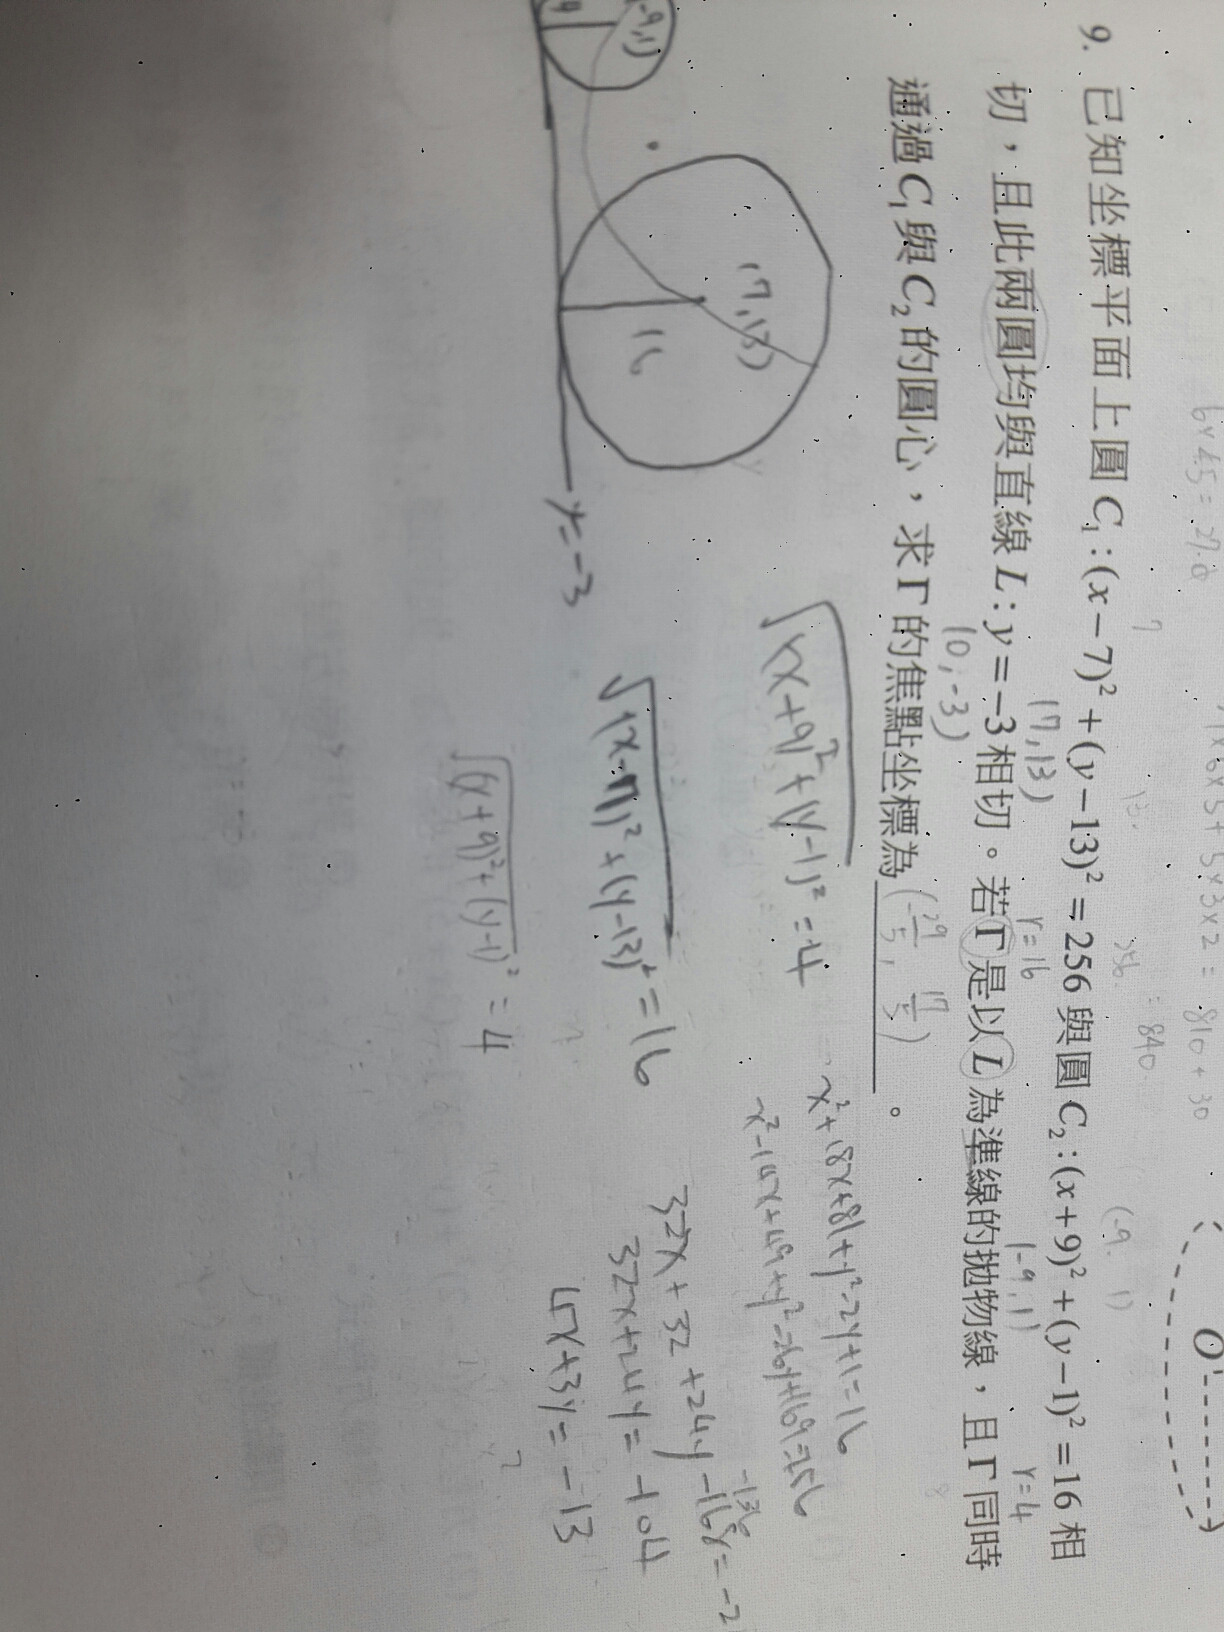 6×4.5=27.0
O'
9. 已知坐標平面上圓 C₁:(x−7)²+(y−13)²=256 與圓 C₂:(x+9)²+(y−1)²=16 相
(7,13)
r=16
(-9,1)
r=4
切，且此兩圓均與直線 L:y=−3 相切。若 Γ 是以 L 為準線的拋物線，且 Γ 同時
(0,-3)
通過 C₁ 與 C₂ 的圓心，求 Γ 的焦點坐標為 (-29/5, 17/5) 。
4
(-9,1)
(7,13)
16
y=-3
√(x+9)²+(y-1)²=4
√(x-7)²+(y-13)²=16
√(x+9)²+(y-1)²=4
x²+18x+81+y²-2y+1=16
x²-14x+49+y²-26y+169=256
32x+32+24y-168=-2
-136
32x+24y=-104
4x+3y=-13